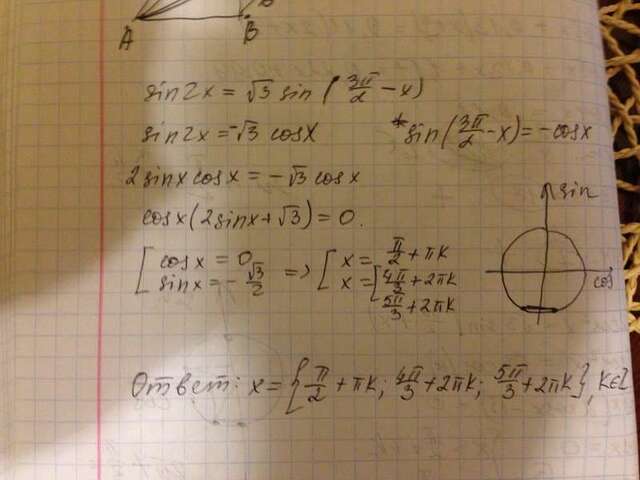 A B
sin2x = √3 sin(3π/2 - x)
sin2x = -√3 cosx *sin(3π/2 - x) = -cosx
2sinxcosx = -√3 cosx
cosx(2sinx + √3) = 0.
[cosx = 0 => [x = π/2 + πk
sinx = -√3/2 x = [4π/3 + 2πk
5π/3 + 2πk
sin
cos
Ответ: x = {π/2 + πk; 4π/3 + 2πk; 5π/3 + 2πk}, k∈Z